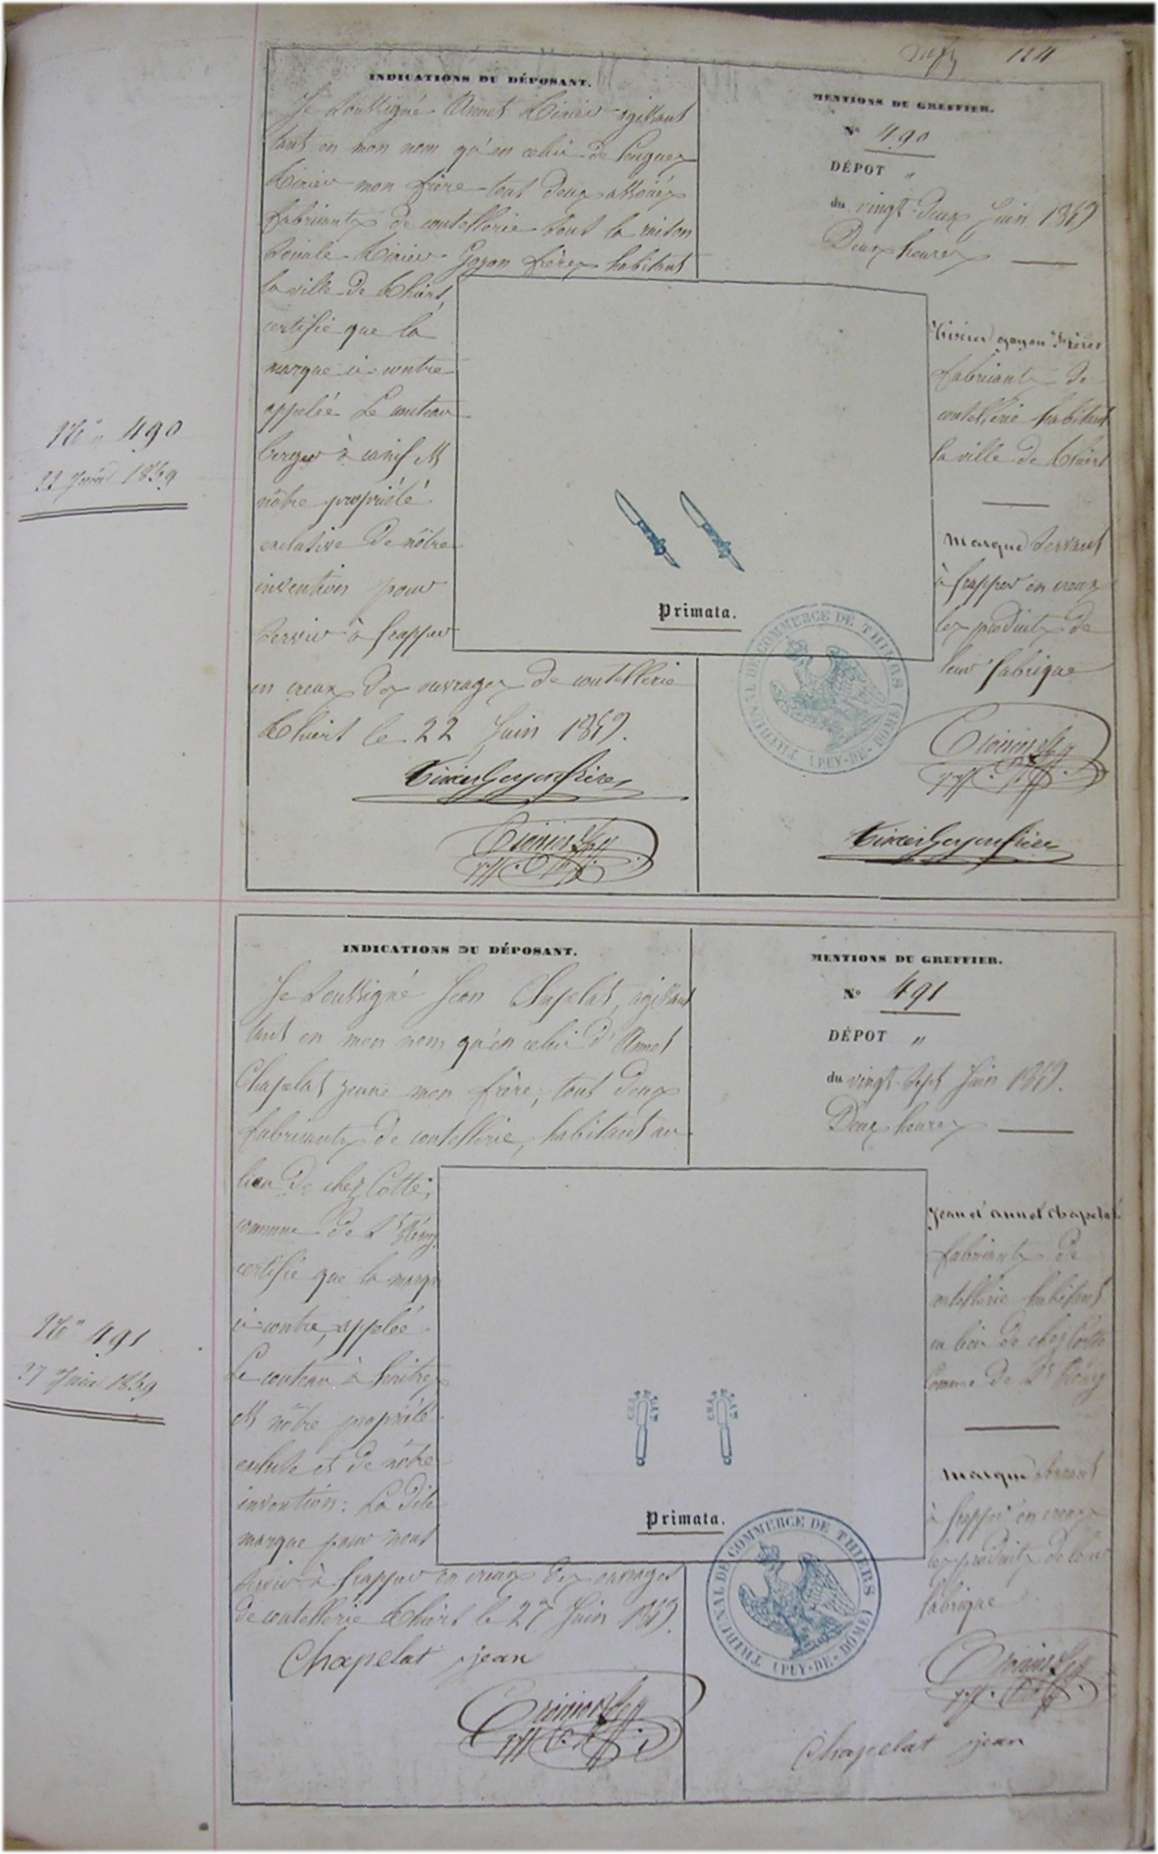 124
INDICATIONS DU DÉPOSANT.
Je soussigné Annet Tixier agissant
tant en mon nom qu'en celui de
Tixier mon frère tout deux associés
fabricants de coutellerie sous la raison
sociale Tixier Goyon frères habitant
la ville de Thiers,
certifie que la
marque ci-contre
appelée Le couteau
berger à canif est
nôtre propriété
exclusive de nôtre
invention pour
servir à frapper
en creux des ouvrages de coutellerie
Thiers le 22 Juin 1859.
Tixier Goyon frères
MENTIONS DU GREFFIER.
N° 490
DÉPOT "
du vingt-deux Juin 1859
Deux heures
Tixier Goyon Frères
fabricants de
coutellerie habitant
la ville de Thiers
Marque servant
à frapper en creux
les produits de
leur fabrique
Tixier Goyon frères
N° 490
22 Juin 1859
Primata.
TRIBUNAL DE COMMERCE DE THIERS
(PUY-DE-DOME)
INDICATIONS DU DÉPOSANT.
Je soussigné Jean Chapelat, agissant
tant en mon nom qu'en celui d'Annet
Chapelat jeune mon frère, tout deux
fabricants de coutellerie, habitant au
lieu de chez Cotte,
commune de St Rémy
certifie que la marque
ci-contre, appelée
Le couteau à huitres
est nôtre propriété
exclusive et de nôtre
invention. La dite
marque pour nous
servir à frapper en creux des ouvrages
de coutellerie Thiers le 27 Juin 1859.
Chapelat jean
MENTIONS DU GREFFIER.
N° 491
DÉPOT "
du vingt-sept Juin 1859.
Deux heures
Jean et annet Chapelat
fabricants de
coutellerie habitant
au lieu de chez Cotte
Comune de St Rémy
Marque servant
à frapper en creux
les produits de leur
fabrique
Chapelat jean
N° 491
27 Juin 1859
Primata.
TRIBUNAL DE COMMERCE DE THIERS
(PUY-DE-DOME)